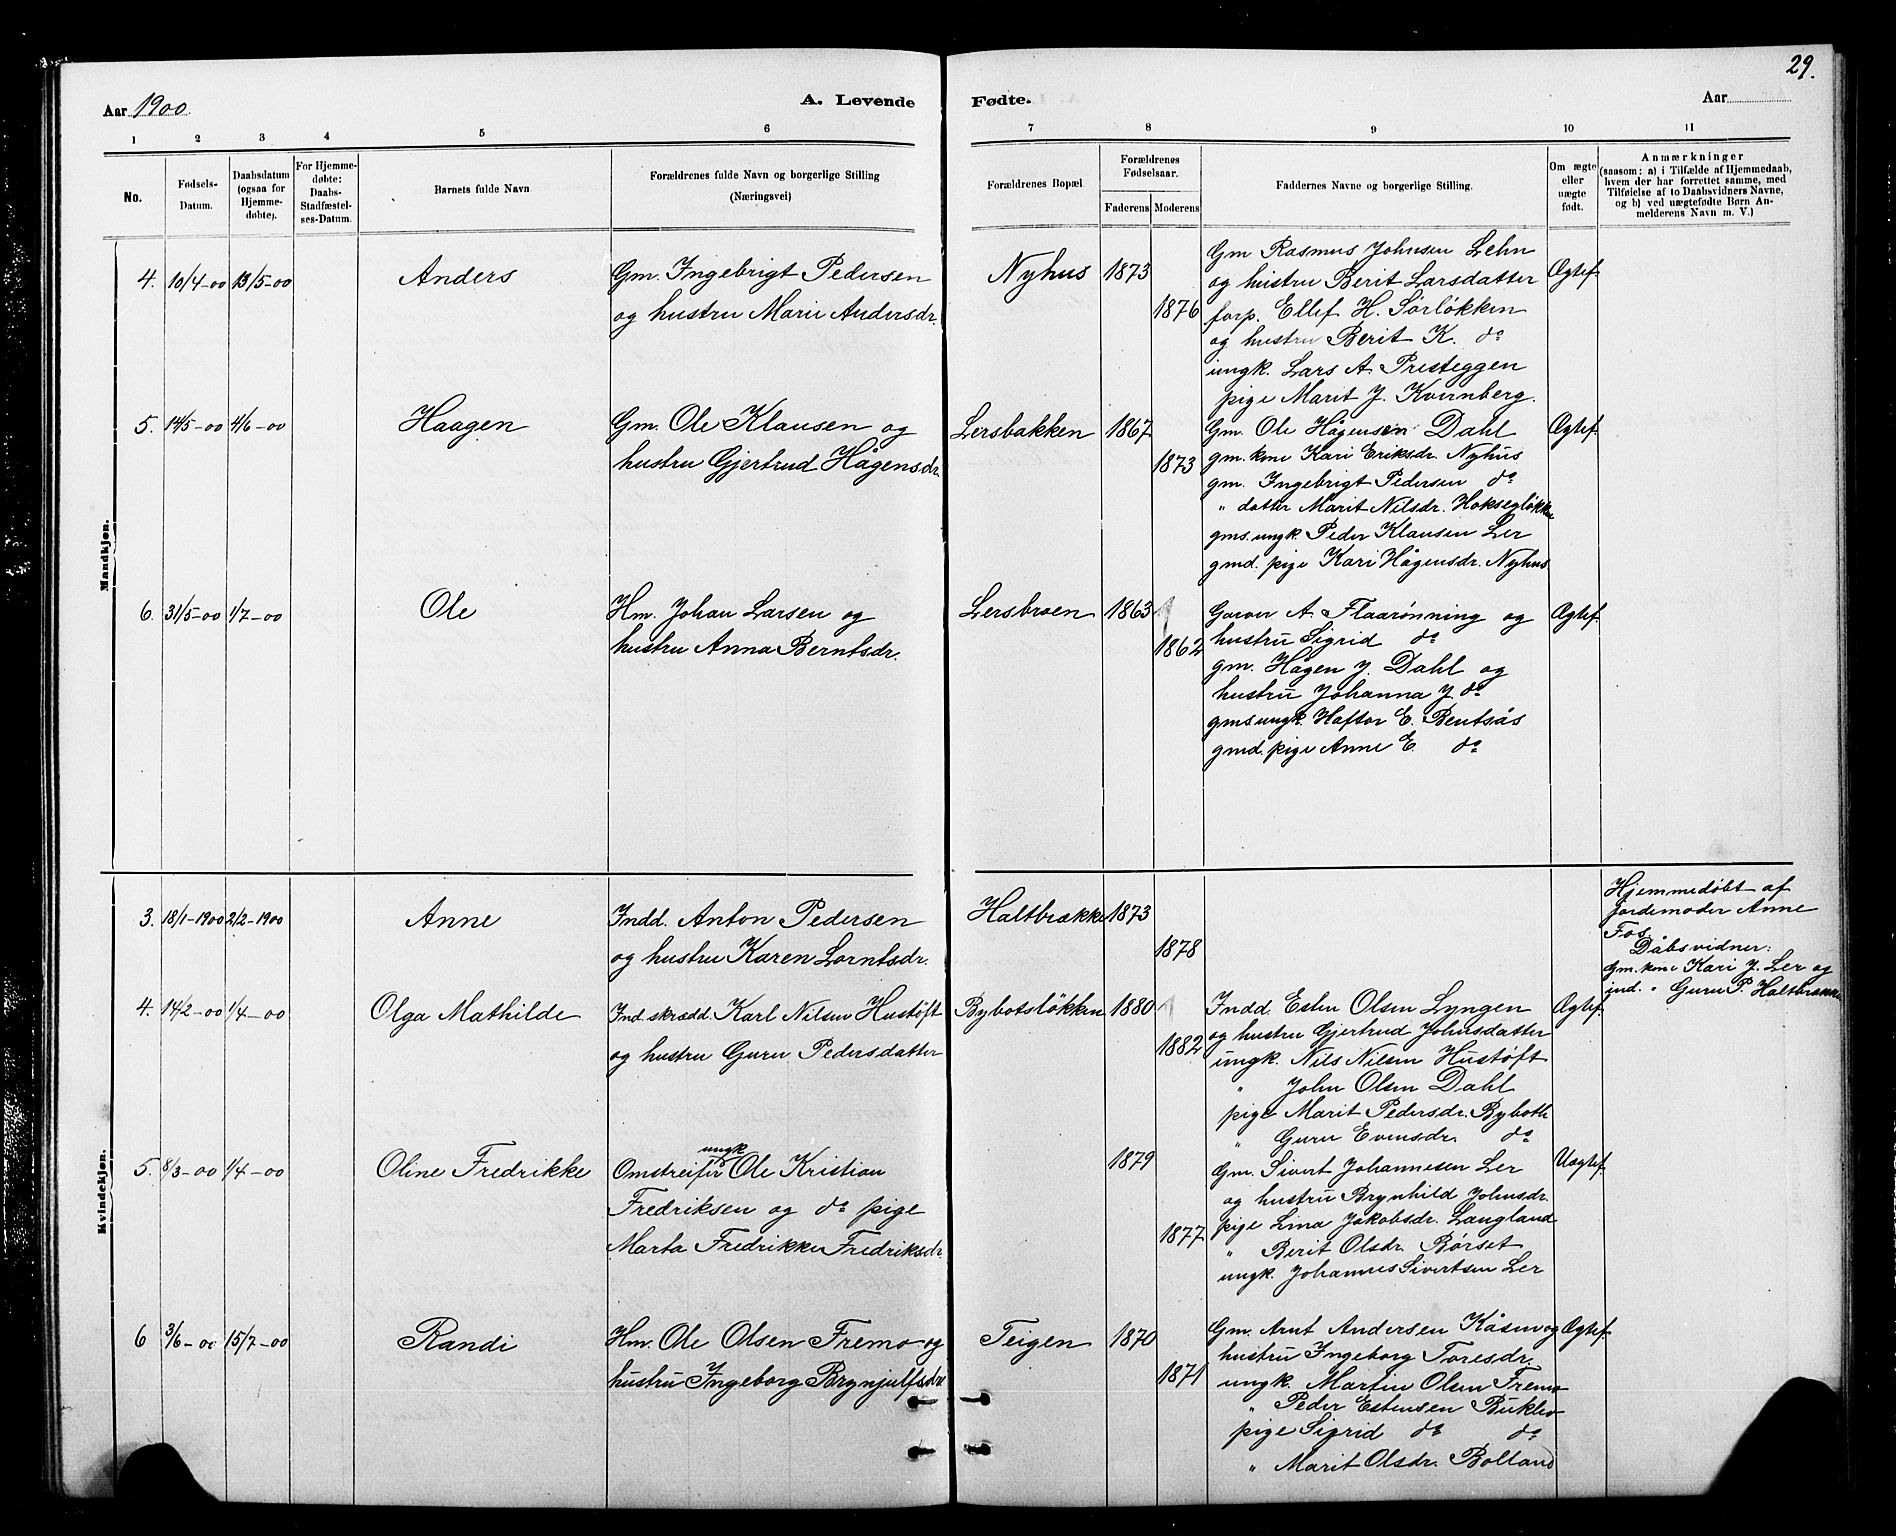 29.
Aar 1900. A. Levende Fødte. Aar
1 2 3 4 5 6 7 8 9 10 11
No.
Fødsels-
Datum.
Daabsdatum
(ogsaa for
Hjemme-
døbte).
For Hjemme-
døbte:
Daabs-
Stadfæstel-
ses-Datum.
Barnets fulde Navn
Forældrenes fulde Navn og borgerlige Stilling
(Næringsvei)
Forældrenes Bopæl
Forældrenes
Fødselsaar.
Faderens Moderens
Faddernes Navne og borgerlige Stilling.
Om ægte
eller
uægte
født.
Anmærkninger
(saasom: a) i Tilfælde af Hjemmedaab,
hvem der har forrettet samme, med
Tilføielse af to Daabsvidners Navne,
og b) ved uægtefødte Børn An-
melderens Navn m. V.)
Mandkjøn.
4. 10/4-00 13/5-00 Anders
Gm. Ingebrigt Pedersen
og hustru Marie Andersdr.
Nyhus 1873
1876
Gm Rasmus Johnsen Lehn
og hustru Berit Larsdatter
forp. Ellef H. Sørløkken
og hustru Berit K. do
ungk. Lars A. Presteggen
pige Marit J. Kvernberg.
Ægtef.
5. 14/5-00 4/6-00 Haagen
Gm. Ole Klausen og
hustru Gjertrud Hågensdr.
Lersbakken 1867
1873
Gm. Ole Hågensen Dahl
gm. kone Kari Eriksdr. Nyhus
gm. Ingebrigt Pedersen do
" datter Marit Nilsdr. Hoksegløkken
gms. ungk. Peder Klausen Ler
gmd. pige Kari Hågensdr. Nyhus
Ægtef.
6. 31/5-00 1/7-00 Ole
Hm. Johan Larsen og
hustru Anna Berntsdr.
Lersbroen 1863
1862
Garver A. Flaarønning og
hustru Sigrid do
gm. Hågen J. Dahl og
hustru Johanna J. do
gms. ungk. Haftor E. Bentsås
gmd. pige Anne E do
Ægtef.
Kvindekjøn.
3. 18/1-1900 2/2-1900 Anne
Indd. Anton Pedersen
og hustru Karen Lorntsdr.
Haltbrække 1873
1878
Hjemmedøbt af
jordemoder Anne
Fos.
Dåbsvidner:
gm. kone Kari J. Ler og
ind. " Guru P. Haltbrække
4. 14/2-00 1/4-00 Olga Mathilde
Ind. skrædd. Karl Nilsen Hustøft
og hustru Guru Pedersdatter
Bybotsløkken 1880
1882
Indd. Esten Olsen Lyngen
og hustru Gjertrud Johnsdatter
ungk. Nils Nilsen Hustøft
" John Olsen Dahl
pige Marit Pedersdr. Byboth
" Guru Evensdr. do
Ægtef.
5. 8/3-00 1/4-00 Oline Fredrikke
ungk
Omstreifer Ole Kristian
Fredriksen og do pige
Marta Fredrikke Fredriksdr.
1879
1877
Gm. Sivert Johannesen Ler
og hustru Brynhild Johnsdr.
pige Lina Jakobsdr. Langland
" Berit Olsdr. Børset
ungk. Johannes Sivertsen Ler
Uægtef.
6 3/6-00 15/7-00 Randi
Hm. Ole Olsen Fremo og
hustru Ingeborg Brynjulfsdr
Teigen 1870
1871
Gm. Arnt Andersen Kåsen og
hustru Ingeborg Toresdr.
ungk. Martin Olsen Fremo
" Peder Estensen Buklev
pige Sigrid do do
" Marit Olsdr. Bolland
Ægtef.